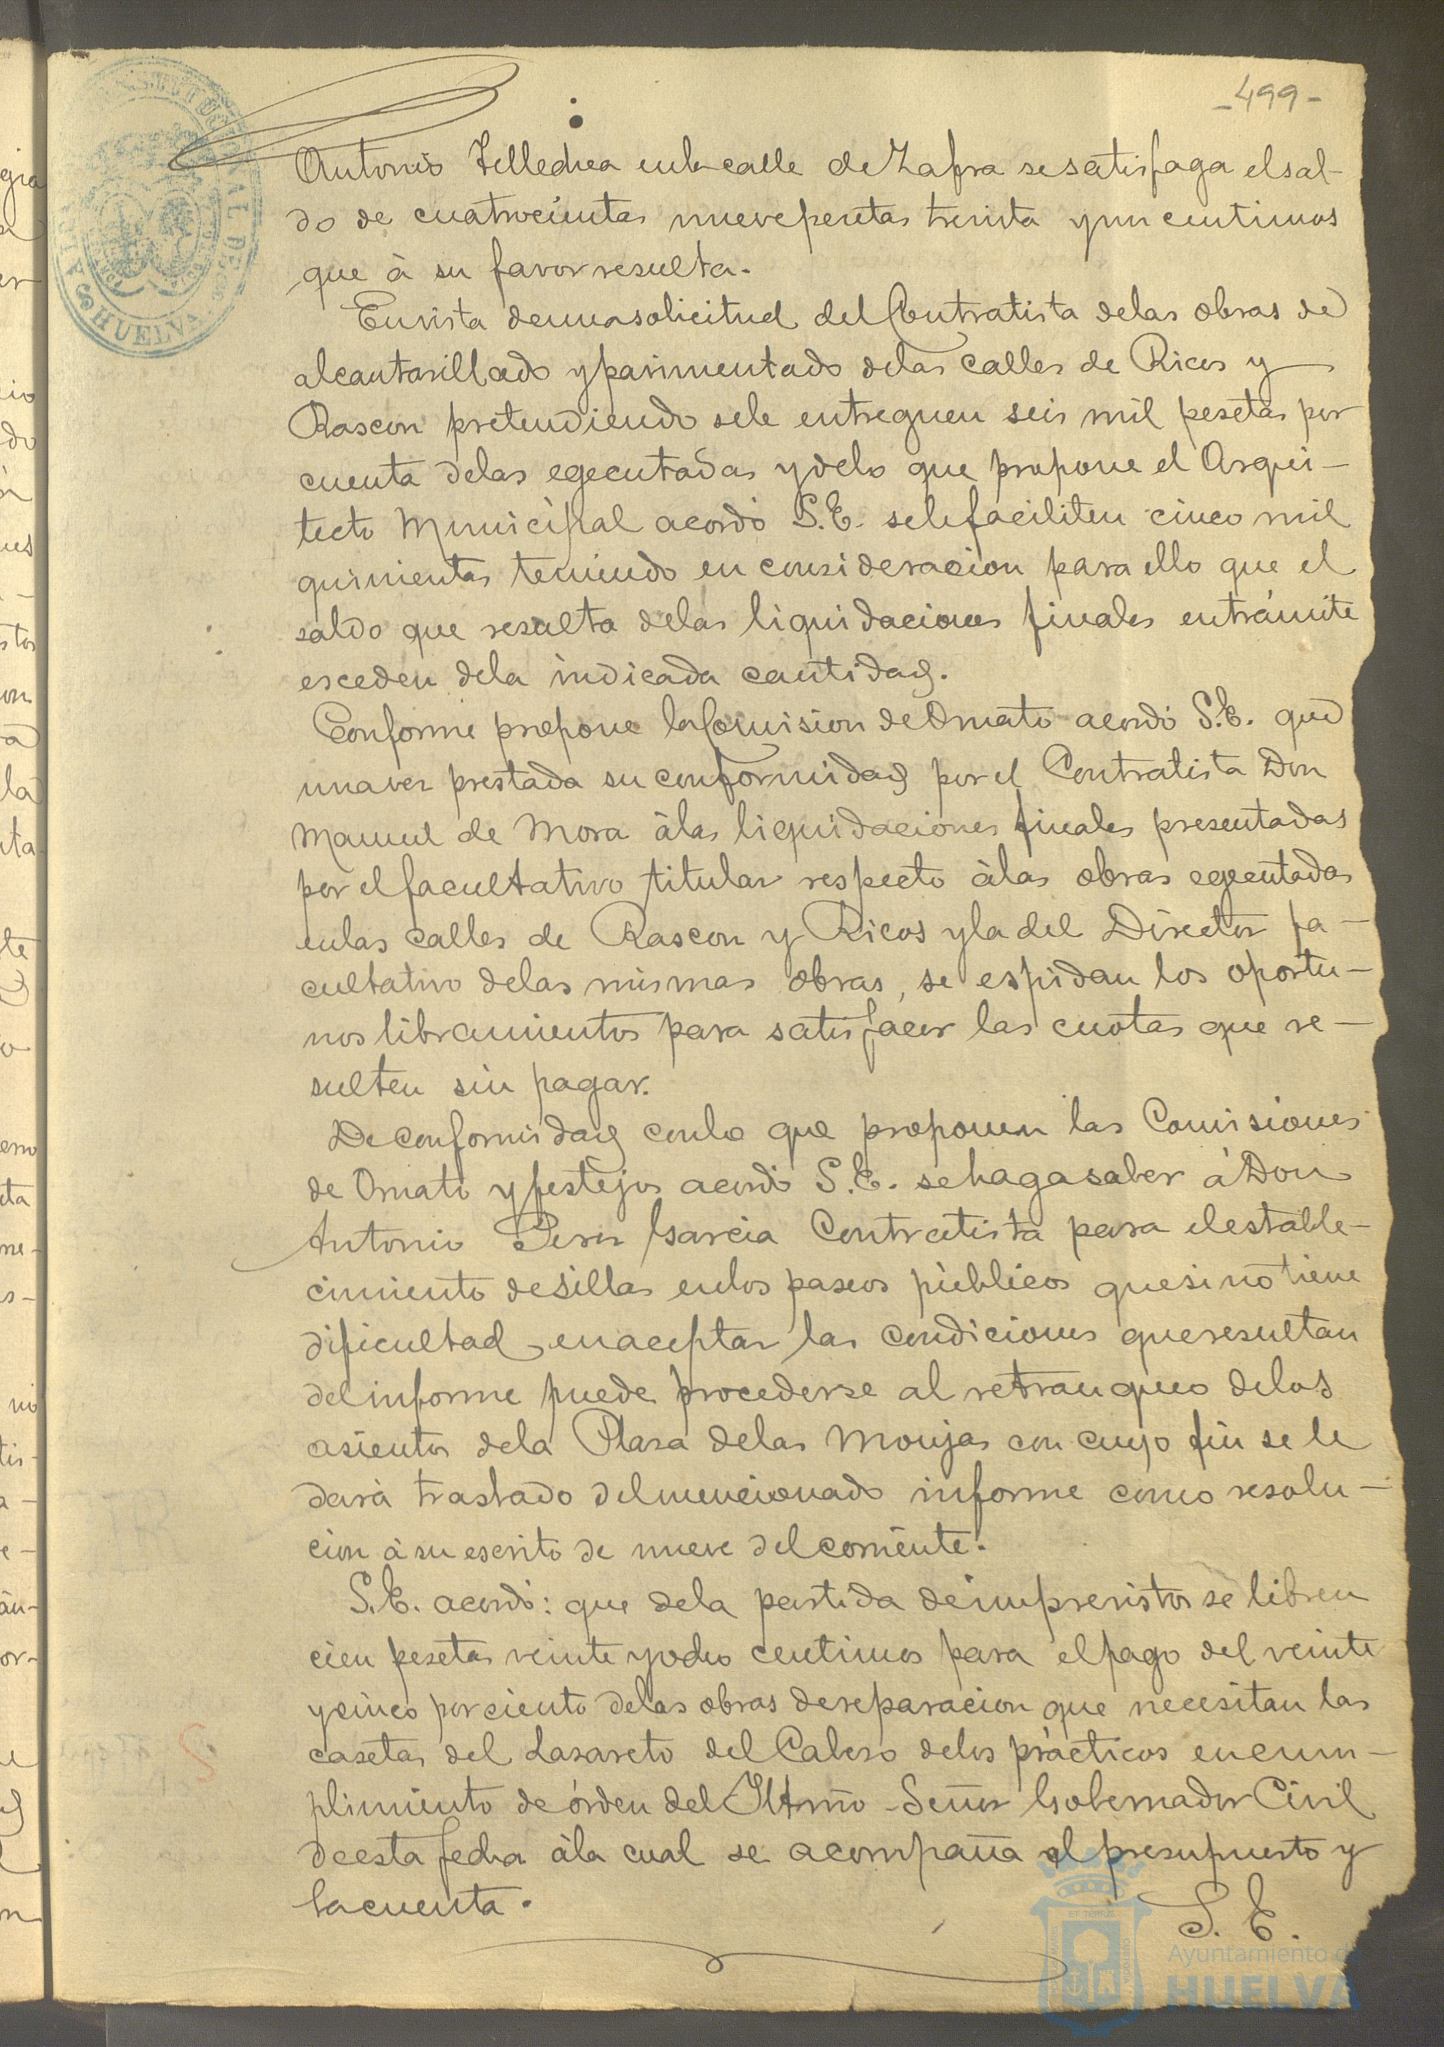 -499-
Antonio Telledrea en la calle de Zafra se satisfaga el sal-
do de cuatrocientas nueve pesetas treinta y un centimos
que à su favor resulta.
En vista de una solicitud del Contratista de las obras de
alcantarillado y pavimentado de las calles de Ricos y
Rascon pretendiendo se le entreguen seis mil pesetas por
cuenta de las egecutadas y de lo que propone el Arqui-
tecto Municipal acordó S.E. se le faciliten cinco mil
quinientas teniendo en consideracion para ello que el
saldo que resulta de las liquidaciones finales en trámite
esceden de la indicada cantidad.
Conforme propone la Comision de Ornato acordó S.E. que
una vez prestada su conformidad por el Contratista Don
Manuel de Mora à las liquidaciones finales presentadas
por el facultativo titular respecto à las obras egecutadas
en las calles de Rascon y Ricos y la del Director fa-
cultativo de las mismas obras, se espidan los oportu-
nos libramientos para satisfacer las cuotas que re-
sulten sin pagar.
De conformidad con lo que proponen las Comisiones
de Ornato y festejos acordó S.E. se haga saber à Don
Antonio Perez Garcia Contratista para el estable-
cimiento de sillas en los paseos públicos que si no tiene
dificultad en aceptar las condiciones que resultan
del informe puede procederse al retranqueo de los
asientos de la Plaza de las Monjas con cuyo fin se le
dará traslado del mencionado informe como resolu-
cion à su escrito de nueve del corriente.
S.E. acordó: que de la partida de imprevistos se libren
cien pesetas veinte y ocho centimos para el pago del veinte
y cinco por ciento de las obras de reparacion que necesitan las
casetas del Lazareto del Cabezo de los prácticos en cum-
plimiento de órden del Iltmo Señor Gobernador Civil
de esta fecha à la cual se acompaña el presupuesto y
la cuenta.
S. E.
HUELVA
Ayuntamiento de
HUELVA